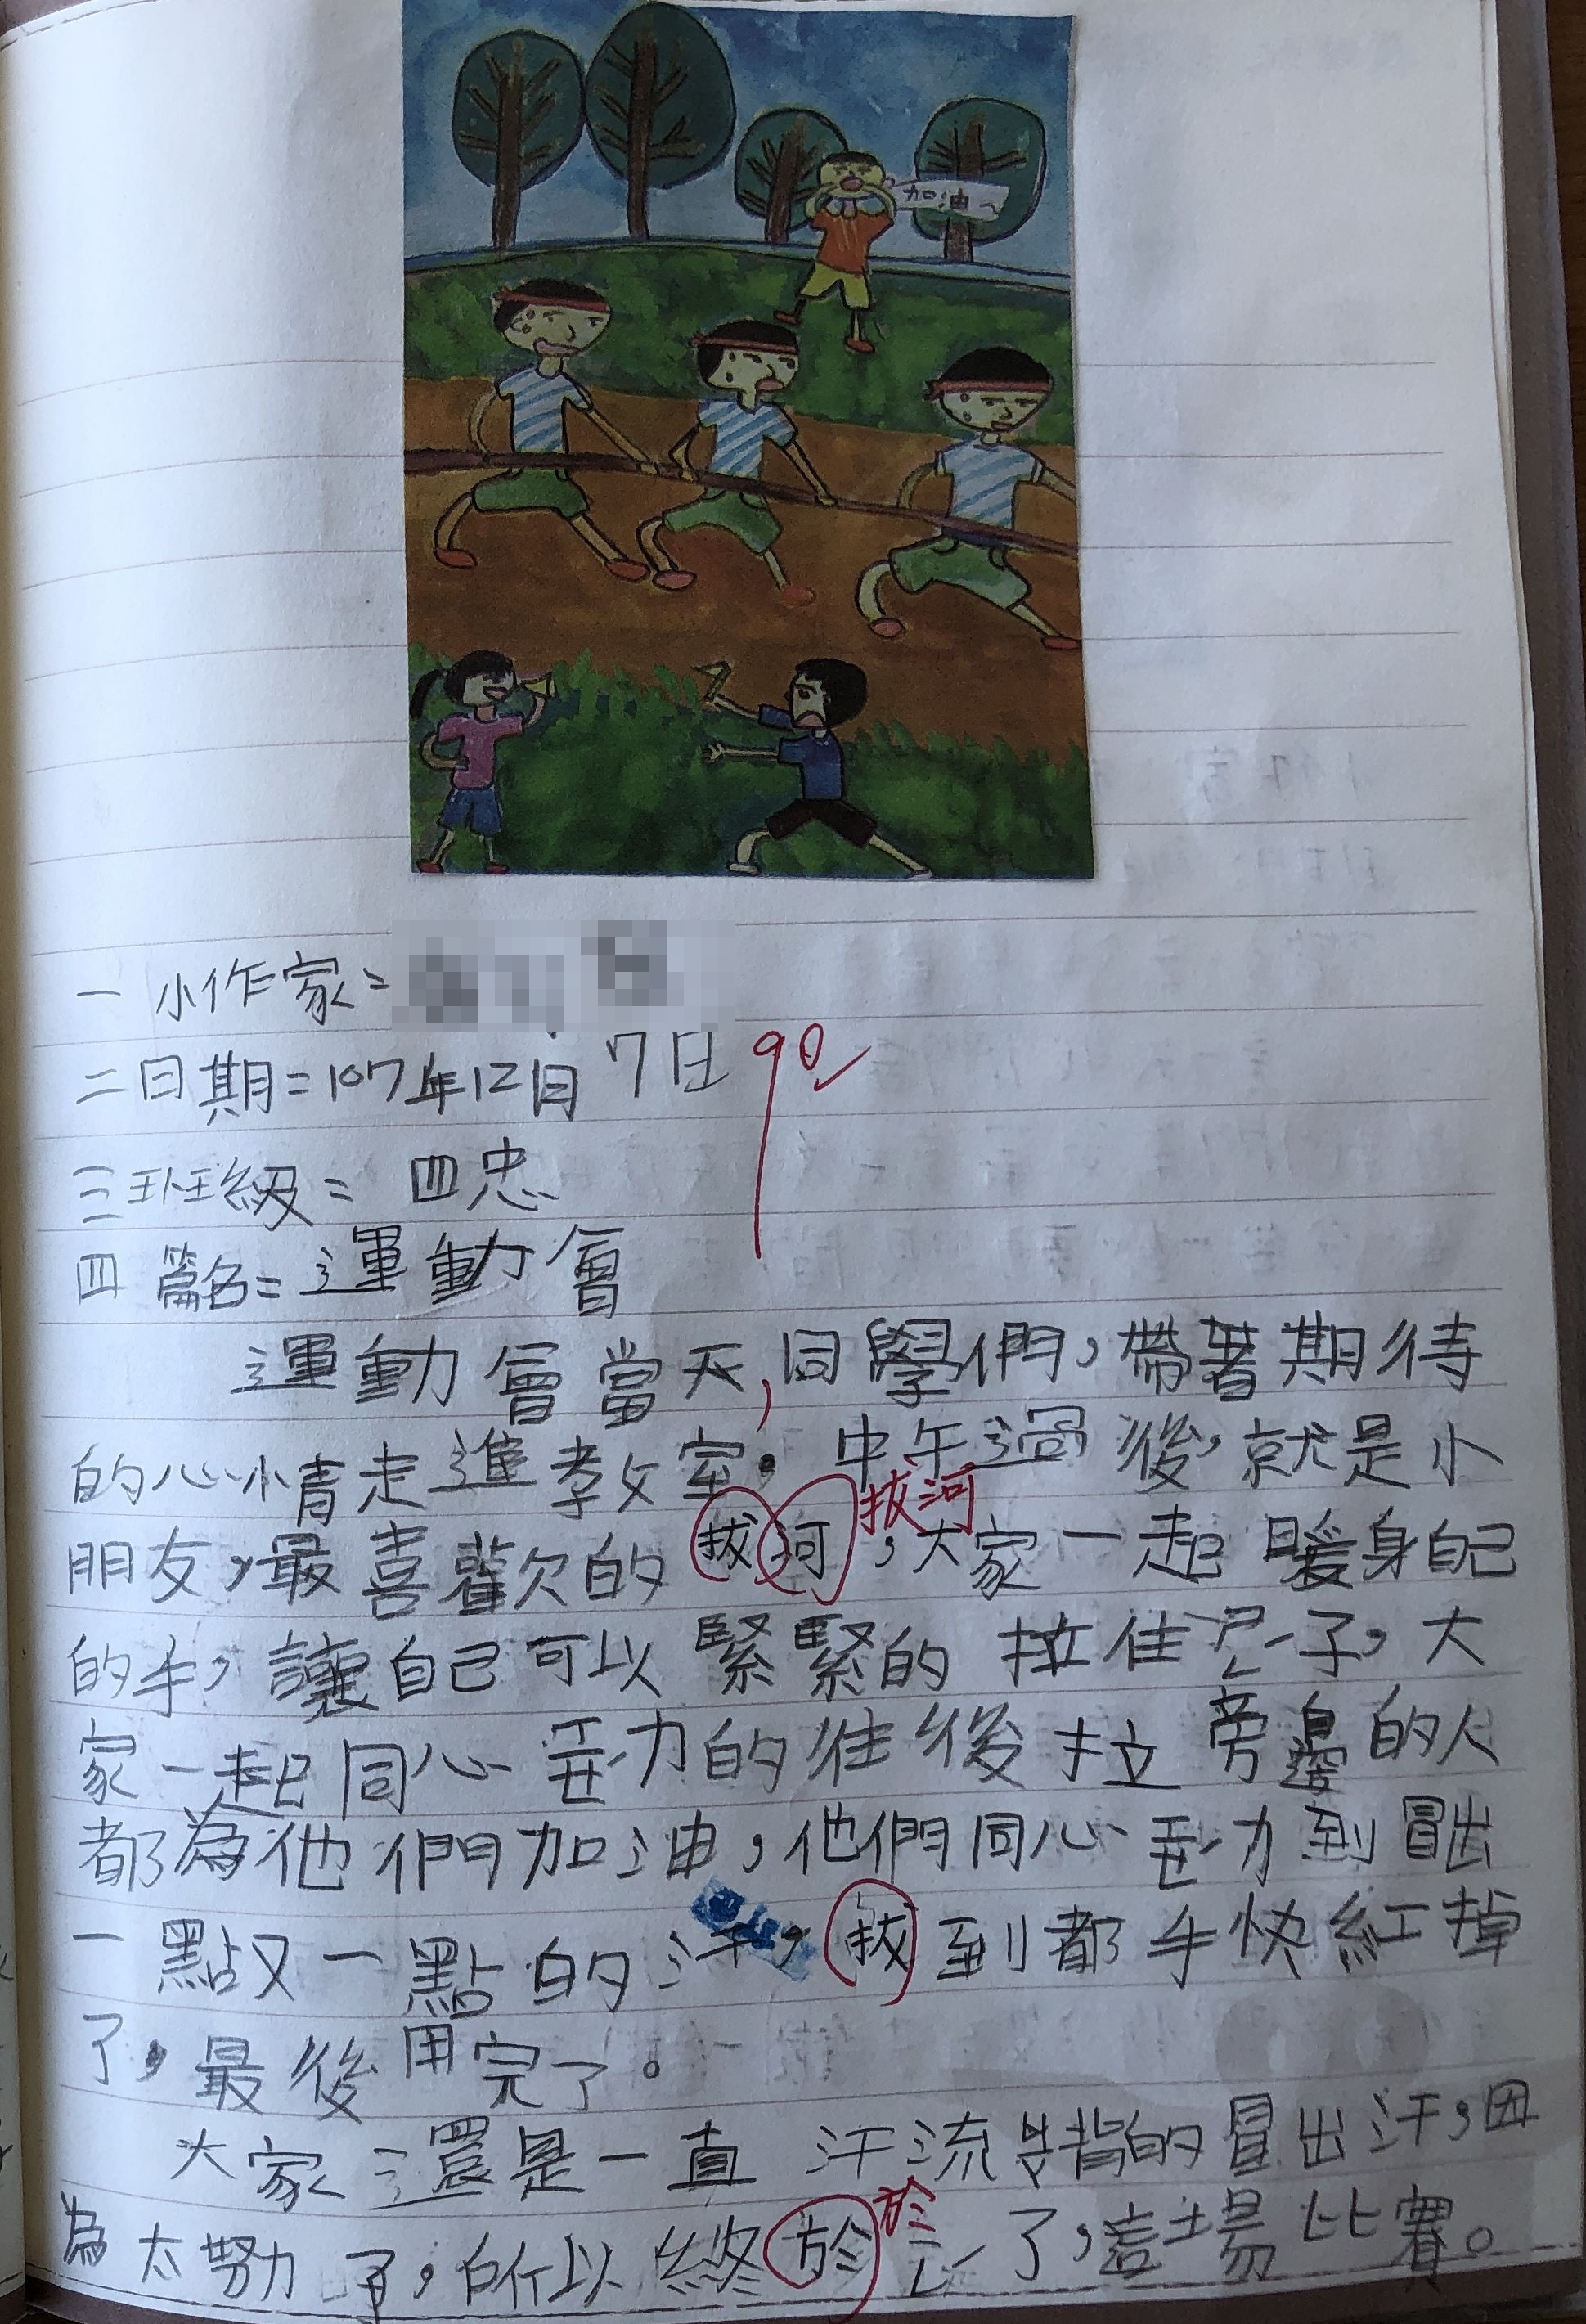 加油~
一 小作家=
二日期=107年12月7日 90
三班級= 四忠
四 篇名=運動會
運動會當天,同學們,帶著期待
的心情走進教室。中午過後,就是小
拔河
朋友,最喜歡的拔河,大家一起暖身自己
的手,讓自己可以緊緊的拉住ㄕㄥˊ子,大
家一起同心ㄓㄧˊ力的往後拉旁邊的人
都為他們加油,他們同心ㄓㄧˊ力到冒出
一點又一點的汗,拔到都手快紅掉
了,最後用完了。
大家還是一直 汗流背的冒出汗,因
於
為太努力了,所以終於 了,這場比賽。